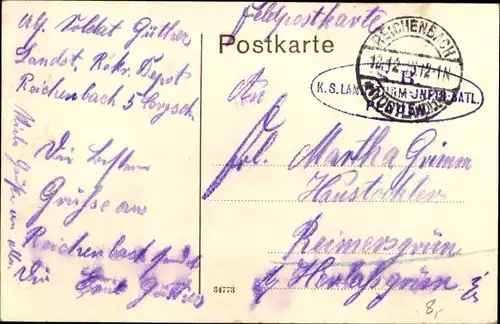 Abs. Soldat Güther
Landst. Rekr. Depot
Reichenbach
Die besten
Grüße aus
Reichenbach sendet
Dir Emil Güther
Viele Grüße an alle.
Feldpostkarte
Postkarte
REICHENBACH
12-1N
(VOGTL.)
K. S. LANDSTURM-INFTR. BATL.
An
Frl. Martha Grimm
Haustochter
Reimersgrün
Herlasgrün
34773
8,